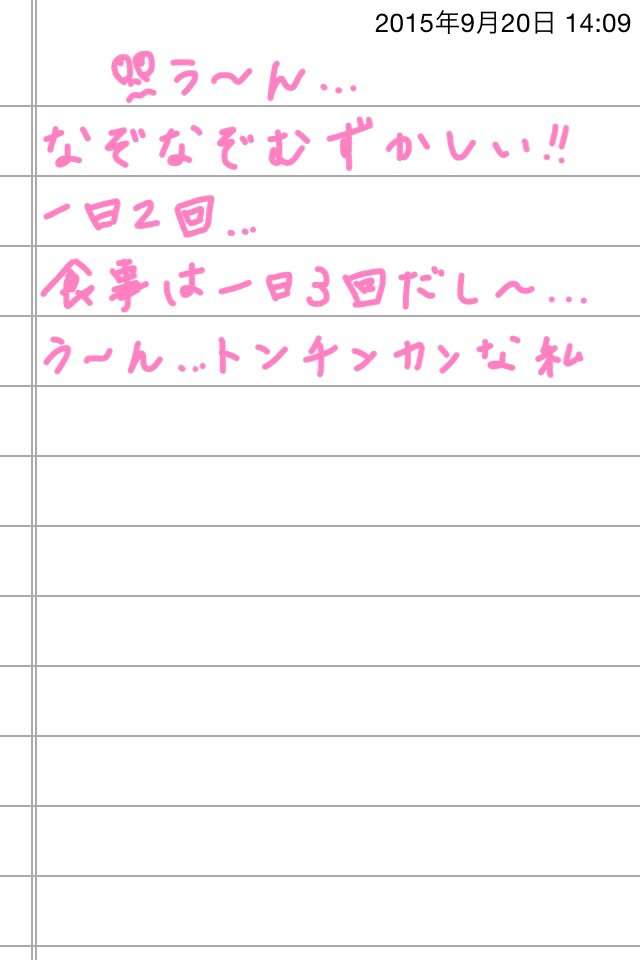 2015年9月20日 14:09
う〜ん...
なぞなぞむずかしい!!
一日2回...
食事は一日3回だし〜...
う〜ん...トンチンカンな私